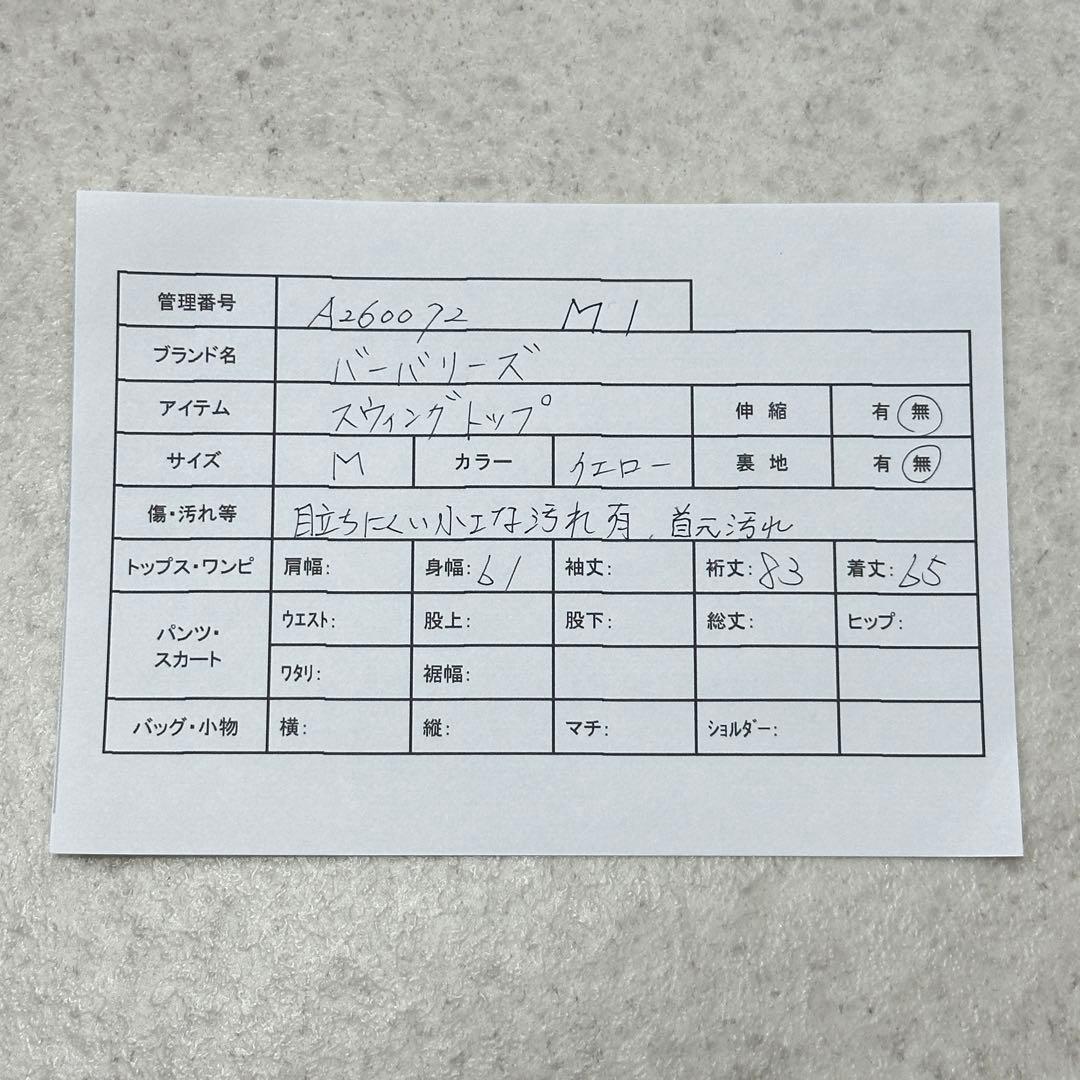 管理番号 A260072 M1
ブランド名 バーバリーズ
アイテム スウィングトップ 伸縮 有 無
サイズ M カラー イエロー 裏地 有 無
傷・汚れ等 目立ちにくい小さな汚れ有、首元汚れ
トップス・ワンピ 肩幅: 身幅:61 袖丈: 裄丈:83 着丈:65
パンツ・スカート ウエスト: 股上: 股下: 総丈: ヒップ:
ワタリ: 裾幅:
バッグ・小物 横: 縦: マチ: ショルダー: